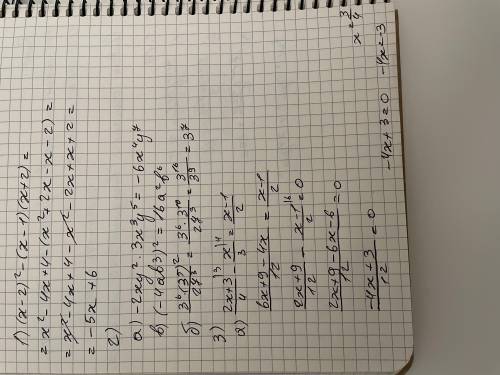 1) (x-2)² - (x-1)(x+2) =
= x² - 4x + 4 - (x² + 2x - x - 2) =
= x² - 4x + 4 - x² - 2x + x + 2 =
= -5x + 6
2)
а) -2xy² · 3x³y⁵ = -6x⁴y⁷
в) (-4ab³)² = 16a²b⁶
б) 3⁶·(3⁵)² / 27³ = 3⁶·3¹⁰ / 27³ = 3¹⁶ / 3⁹ = 3⁷
3)
а) 2x+3 ⁽³ / 4 - x ⁽⁴ / 3 = x-1 / 2
6x+9-4x / 12 = x-1 / 2
2x+9 / 12 - x-1 ⁽⁶ / 2 = 0
2x+9-6x-6 / 12 = 0
-4x+3 / 12 = 0
-4x+3=0 -4x=-3
x = 3/4